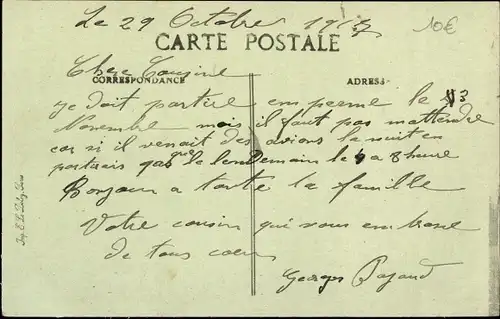 Le 29 Octobre 1917
10€
CARTE POSTALE
Chere Cousine
CORRESPONDANCE
ADRESSE
je doit partire en perme le 3
Novembre mais il faut pas mattendre
car si il venait des avions la nuit en
partirais que le lendemain le 4 a 8 heure
Bonjour a toute la famille
Votre cousin qui vous embrasse
de tous coeur
Georges Pajaud